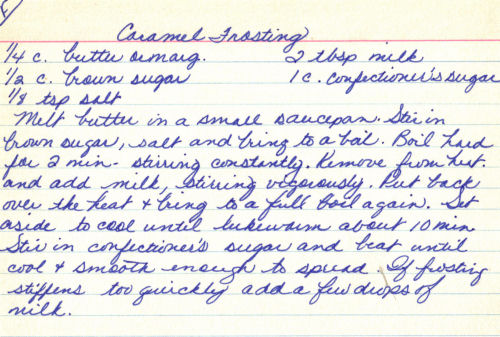 Caramel Frosting
1/4 c. butter or marg. 2 tbsp milk
1/2 c. brown sugar 1 c. confectioner's sugar
1/8 tsp salt
Melt butter in a small saucepan. Stir in
brown sugar, salt and bring to a boil. Boil hard
for 2 min - stirring constantly. Remove from heat.
and add milk, stirring vigorously. Put back
over the heat + bring to a full boil again. Set
aside to cool until lukewarm about 10 min
Stir in confectioner's sugar and beat until
cool + smooth enough to spread. If frosting
stiffens too quickly add a few drops of
milk.